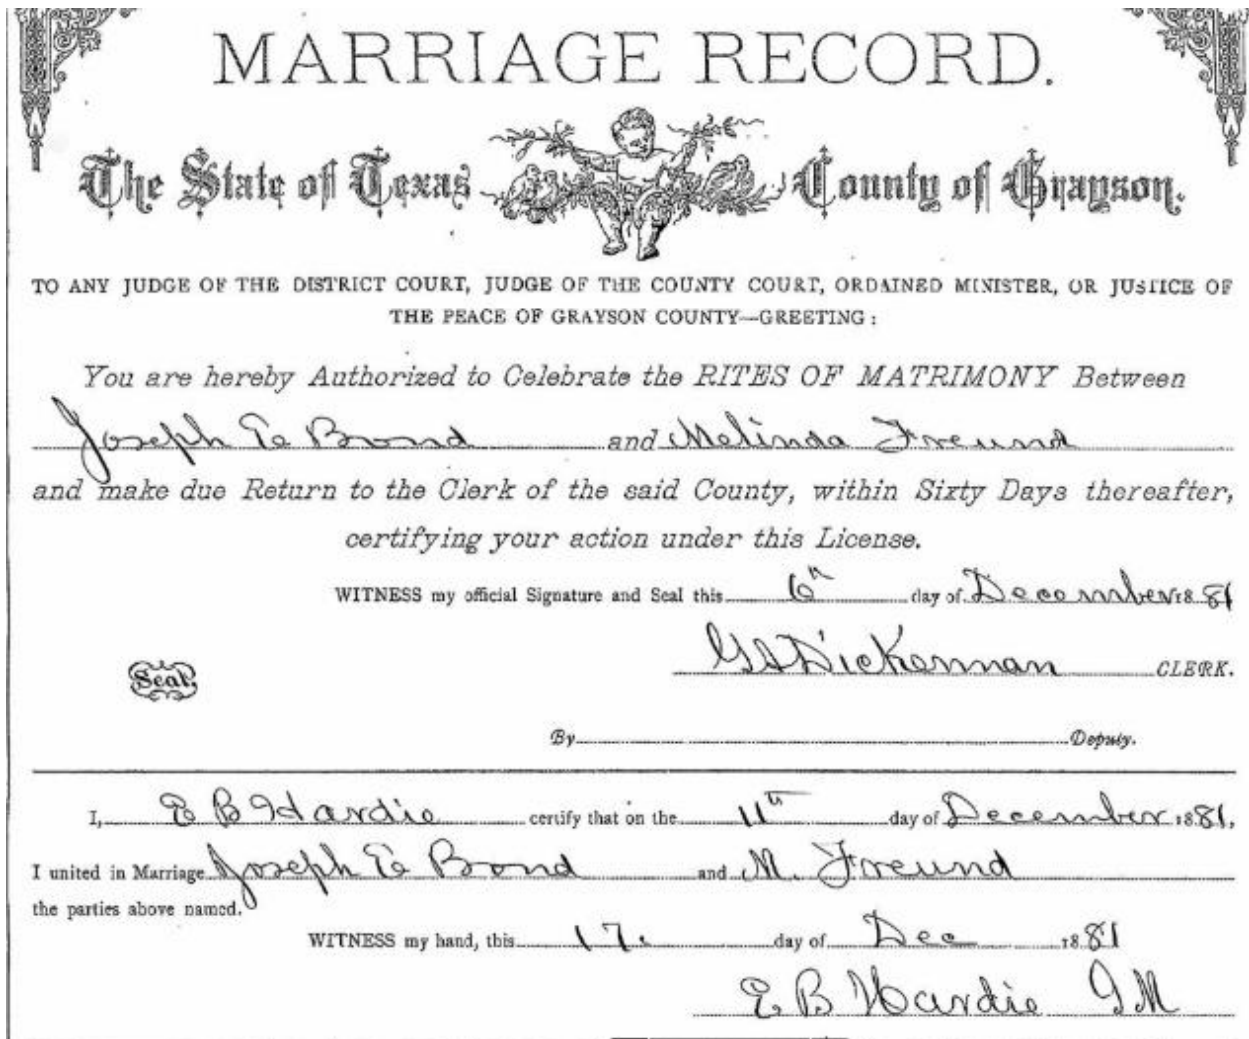 MARRIAGE RECORD.
The State of Texas County of Grayson.
TO ANY JUDGE OF THE DISTRICT COURT, JUDGE OF THE COUNTY COURT, ORDAINED MINISTER, OR JUSTICE OF
THE PEACE OF GRAYSON COUNTY—GREETING:
You are hereby Authorized to Celebrate the RITES OF MATRIMONY Between
Joseph E Bond and Melinda Freund
and make due Return to the Clerk of the said County, within Sixty Days thereafter,
certifying your action under this License.
WITNESS my official Signature and Seal this 6th day of December 1881
Dickerman CLERK.
Seal.
By Deputy.
I, E B Hardie certify that on the 11th day of December 1881,
I united in Marriage Joseph E Bond and M. Freund
the parties above named.
WITNESS my hand, this 17. day of Dec 1881
E B Hardie